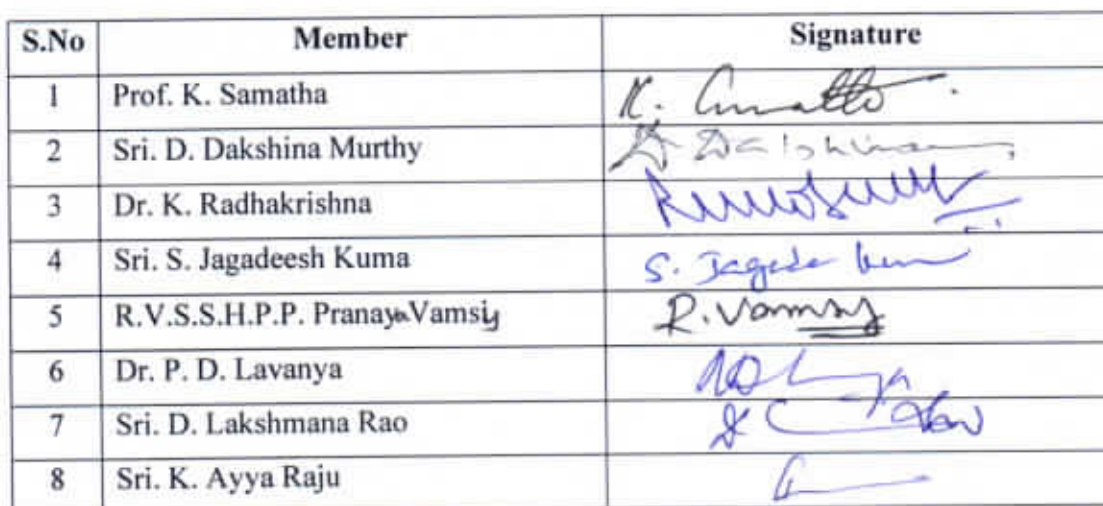 S.No Member Signature
1 Prof. K. Samatha K.
2 Sri. D. Dakshina Murthy D Dakshina
3 Dr. K. Radhakrishna
4 Sri. S. Jagadeesh Kuma S. Jagade
5 R.V.S.S.H.P.P. Pranaya Vamsiy R. Vamsy
6 Dr. P. D. Lavanya
7 Sri. D. Lakshmana Rao
8 Sri. K. Ayya Raju